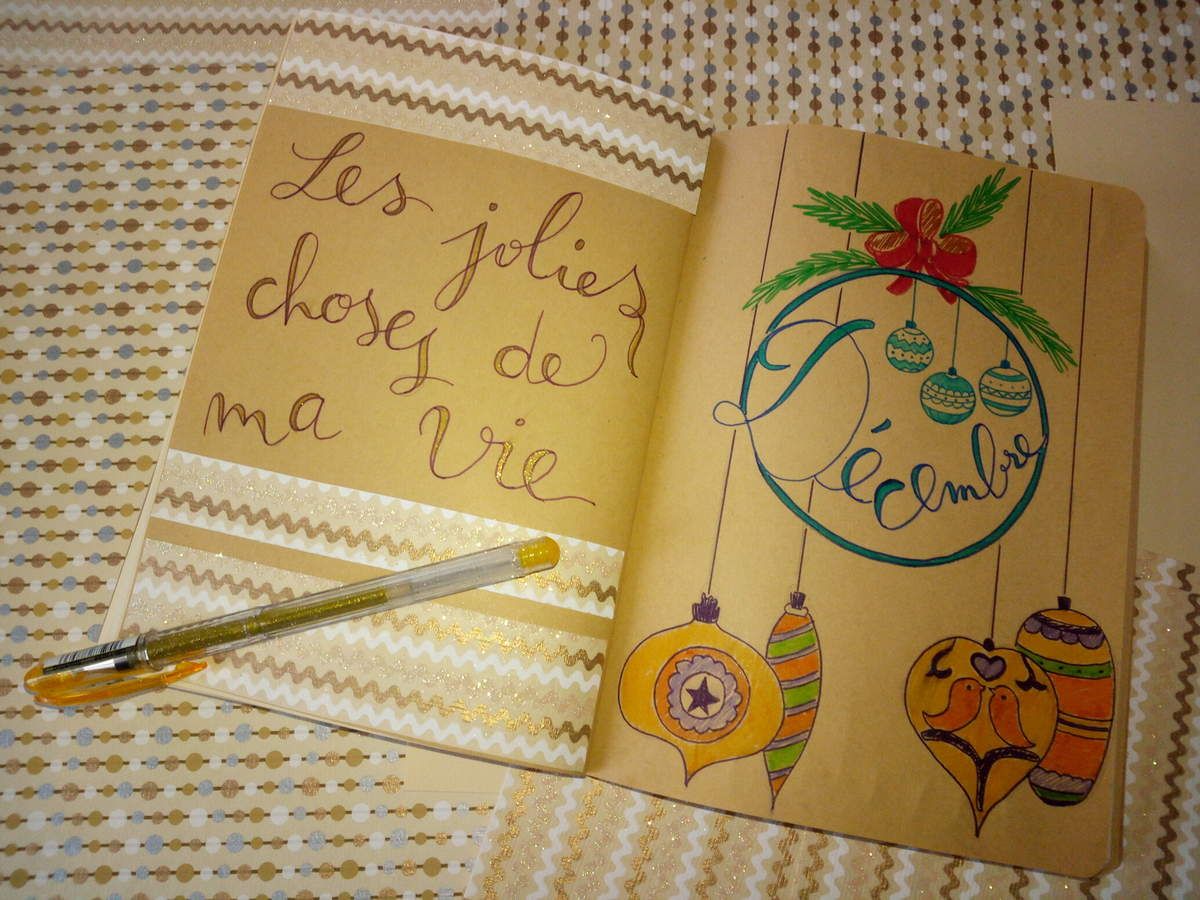 Les jolies
choses de
ma vie
Décembre